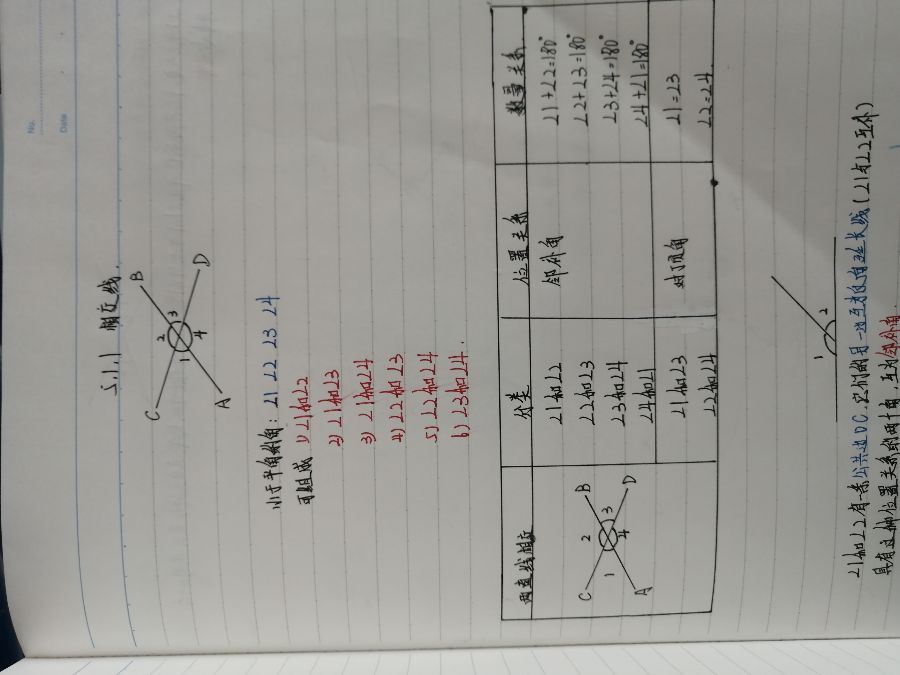 No.
Date
5.1.1 相交线.
C B
2
1 3
4
A D
小于平角的角: ∠1 ∠2 ∠3 ∠4
可组成 1) ∠1和∠2
2) ∠1和∠3
3) ∠1和∠4
4) ∠2和∠3
5) ∠2和∠4
6) ∠3和∠4.
两直线相交 分类 位置关系 数量关系
C B
2
1 3
4
A D
∠1和∠2 邻补角 ∠1+∠2=180°
∠2和∠3 ∠2+∠3=180°
∠3和∠4 ∠3+∠4=180°
∠4和∠1 ∠4+∠1=180°
∠1和∠3 对顶角 ∠1=∠3
∠2和∠4 ∠2=∠4.
1 2
∠1和∠2有一条公共边OC.它们的另一边互为反向延长线(∠1与∠2互补)
具有这种位置关系的两个角,互为邻补角.